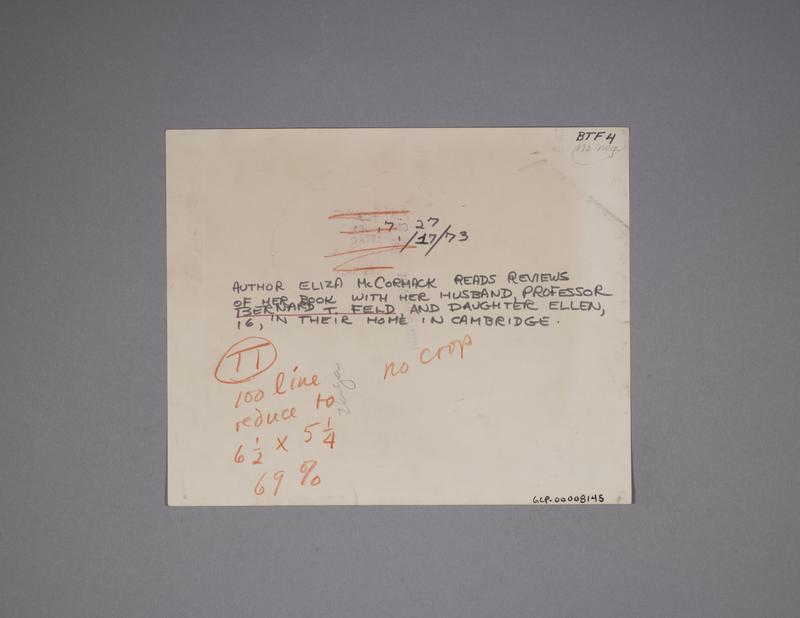 BTF 4
no neg
27
1/17/73
AUTHOR ELIZA McCORMACK READS REVIEWS
OF HER BOOK WITH HER HUSBAND, PROFESSOR
BERNARD T. FELD, AND DAUGHTER ELLEN,
16, IN THEIR HOME IN CAMBRIDGE.
TT
no crop
100 line
reduce to
6 1/2 x 5 1/4
69%
GCP-00008145